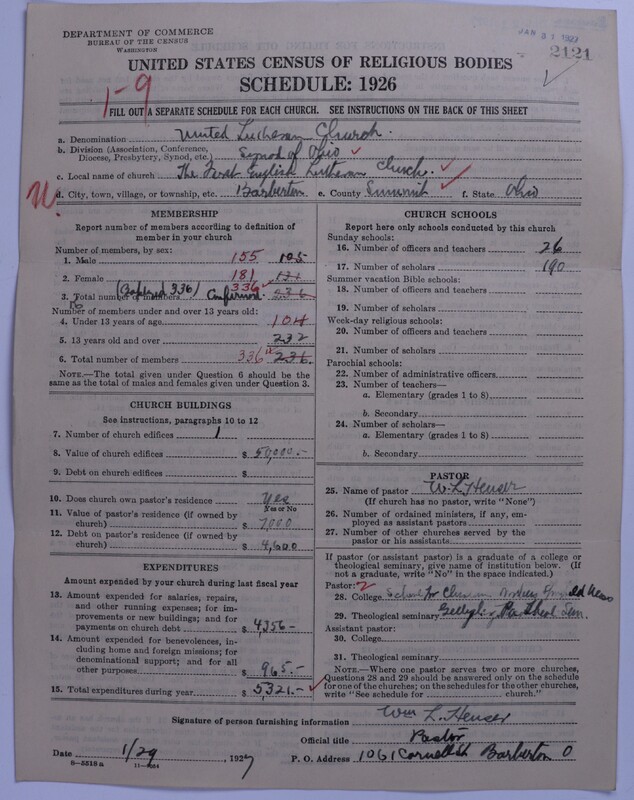 DEPARTMENT OF COMMERCE
BUREAU OF THE CENSUS
WASHINGTON
JAN 31 1927
2121
UNITED STATES CENSUS OF RELIGIOUS BODIES
SCHEDULE: 1926
1-9
FILL OUT A SEPARATE SCHEDULE FOR EACH CHURCH. SEE INSTRUCTIONS ON THE BACK OF THIS SHEET
a. Denomination United Lutheran Church.
b. Division (Association, Conference, Diocese, Presbytery, Synod, etc.) Synod of Ohio
c. Local name of church The First English Lutheran Church.
d. City, town, village, or township, etc. Barberton e. County Summit f. State Ohio
MEMBERSHIP
Report number of members according to definition of
member in your church
Number of members, by sex:
1. Male 155 105
2. Female 181 131
(Baptized 336) 336
3. Total number of members Confirmed 236
Number of members under and over 13 years old:
4. Under 13 years of age 104
5. 13 years old and over 232
6. Total number of members 336 236
NOTE.—The total given under Question 6 should be the
same as the total of males and females given under Question 3.
CHURCH BUILDINGS
See instructions, paragraphs 10 to 12
7. Number of church edifices 1
8. Value of church edifices $ 50,000.-
9. Debt on church edifices $
10. Does church own pastor's residence Yes
Yes or No
11. Value of pastor's residence (if owned by
church) $ 7000
12. Debt on pastor's residence (if owned by
church) $ 4,600
EXPENDITURES
Amount expended by your church during last fiscal year
13. Amount expended for salaries, repairs,
and other running expenses; for im-
provements or new buildings; and for
payments on church debt $ 4356-
14. Amount expended for benevolences, in-
cluding home and foreign missions; for
denominational support; and for all
other purposes $ 965.-
15. Total expenditures during year $ 5321.-
CHURCH SCHOOLS
Report here only schools conducted by this church
Sunday schools:
16. Number of officers and teachers 26
17. Number of scholars 190
Summer vacation Bible schools:
18. Number of officers and teachers
19. Number of scholars
Week-day religious schools:
20. Number of officers and teachers
21. Number of scholars
Parochial schools:
22. Number of administrative officers
23. Number of teachers—
a. Elementary (grades 1 to 8)
b. Secondary
24. Number of scholars—
a. Elementary (grades 1 to 8)
b. Secondary
PASTOR
25. Name of pastor W. L. Heuser
(If church has no pastor, write "None")
26. Number of ordained ministers, if any, em-
ployed as assistant pastors
27. Number of other churches served by the
pastor or his assistants
If pastor (or assistant pastor) is a graduate of a college or
theological seminary, give name of institution below. (If
not a graduate, write "No" in the space indicated.)
Pastor: 2
28. College School for Christian
29. Theological seminary Sem.
Assistant pastor:
30. College
31. Theological seminary
NOTE.—Where one pastor serves two or more churches,
Questions 28 and 29 should be answered only on the schedule
for one of the churches; on the schedules for the other churches,
write "See schedule for church."
Signature of person furnishing information Wm L. Heuser
Official title Pastor
Date 1/29, 1927
P. O. Address 1061 Cornell St Barberton O
8-5518 a